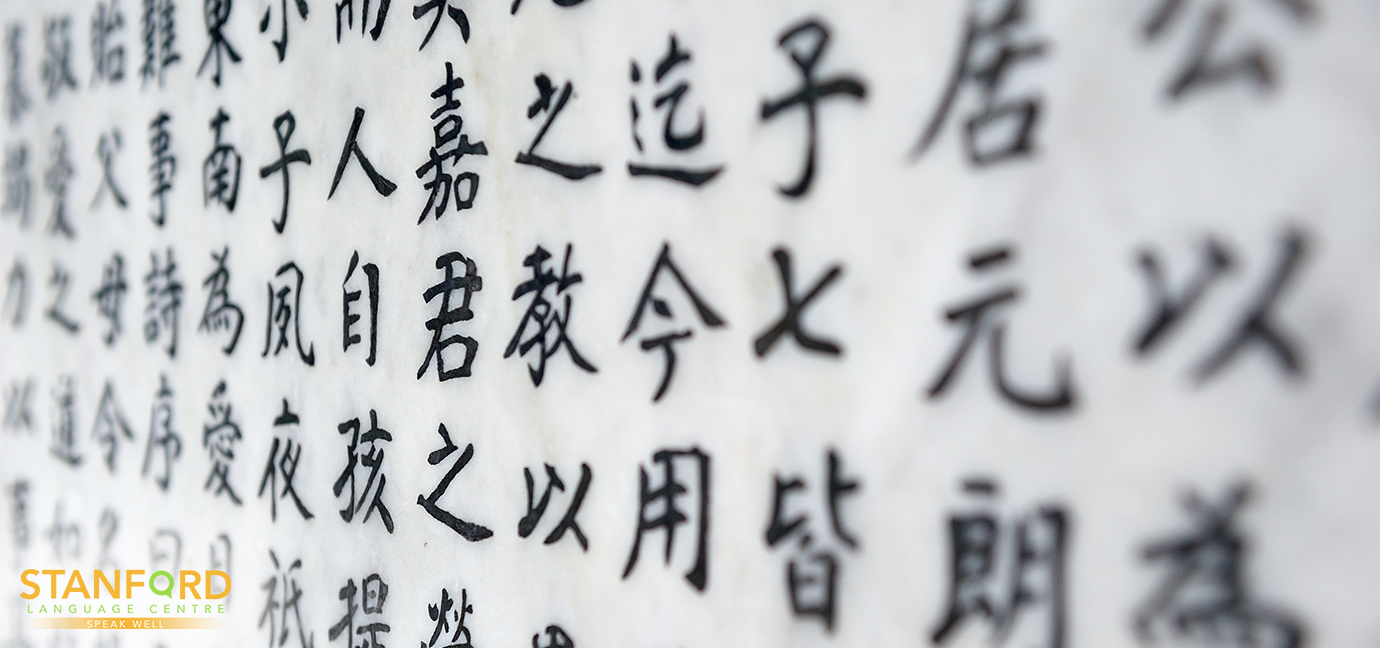 公以為
居元朗
子七皆
迄今用
之教以
嘉君之
而人自孩提
小子夙夜祇
東南為愛日
難事詩序曰
貽父母令名
敬愛之道如
竭力以事
STANFORD
LANGUAGE CENTRE
SPEAK WELL